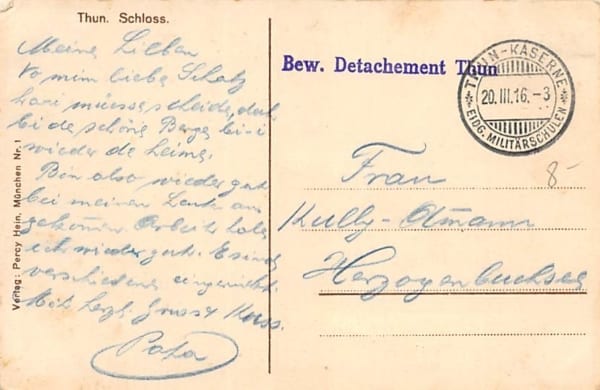 Thun. Schloss.
Meine Lieben
Vo mim liebe Schatz
hani müesse scheide, doch
bi de schöne Berge bi-i
wieder de heime.
Bin also wieder gut
bei meinen Leuten an
gekommen. Arbeit habe
ich wieder gut. Es sind
verschiedene eingerückt.
Mit herzl. Gruss & Kuss.
Papa
Verlag: Percy Hein, München Nr. 1
Bew. Detachement Thun
THUN-KASERNE
20.III.16.-3
EIDG. MILITÄRSCHULEN
8-
Frau
Kully-Otmann
Herzogenbuchsee